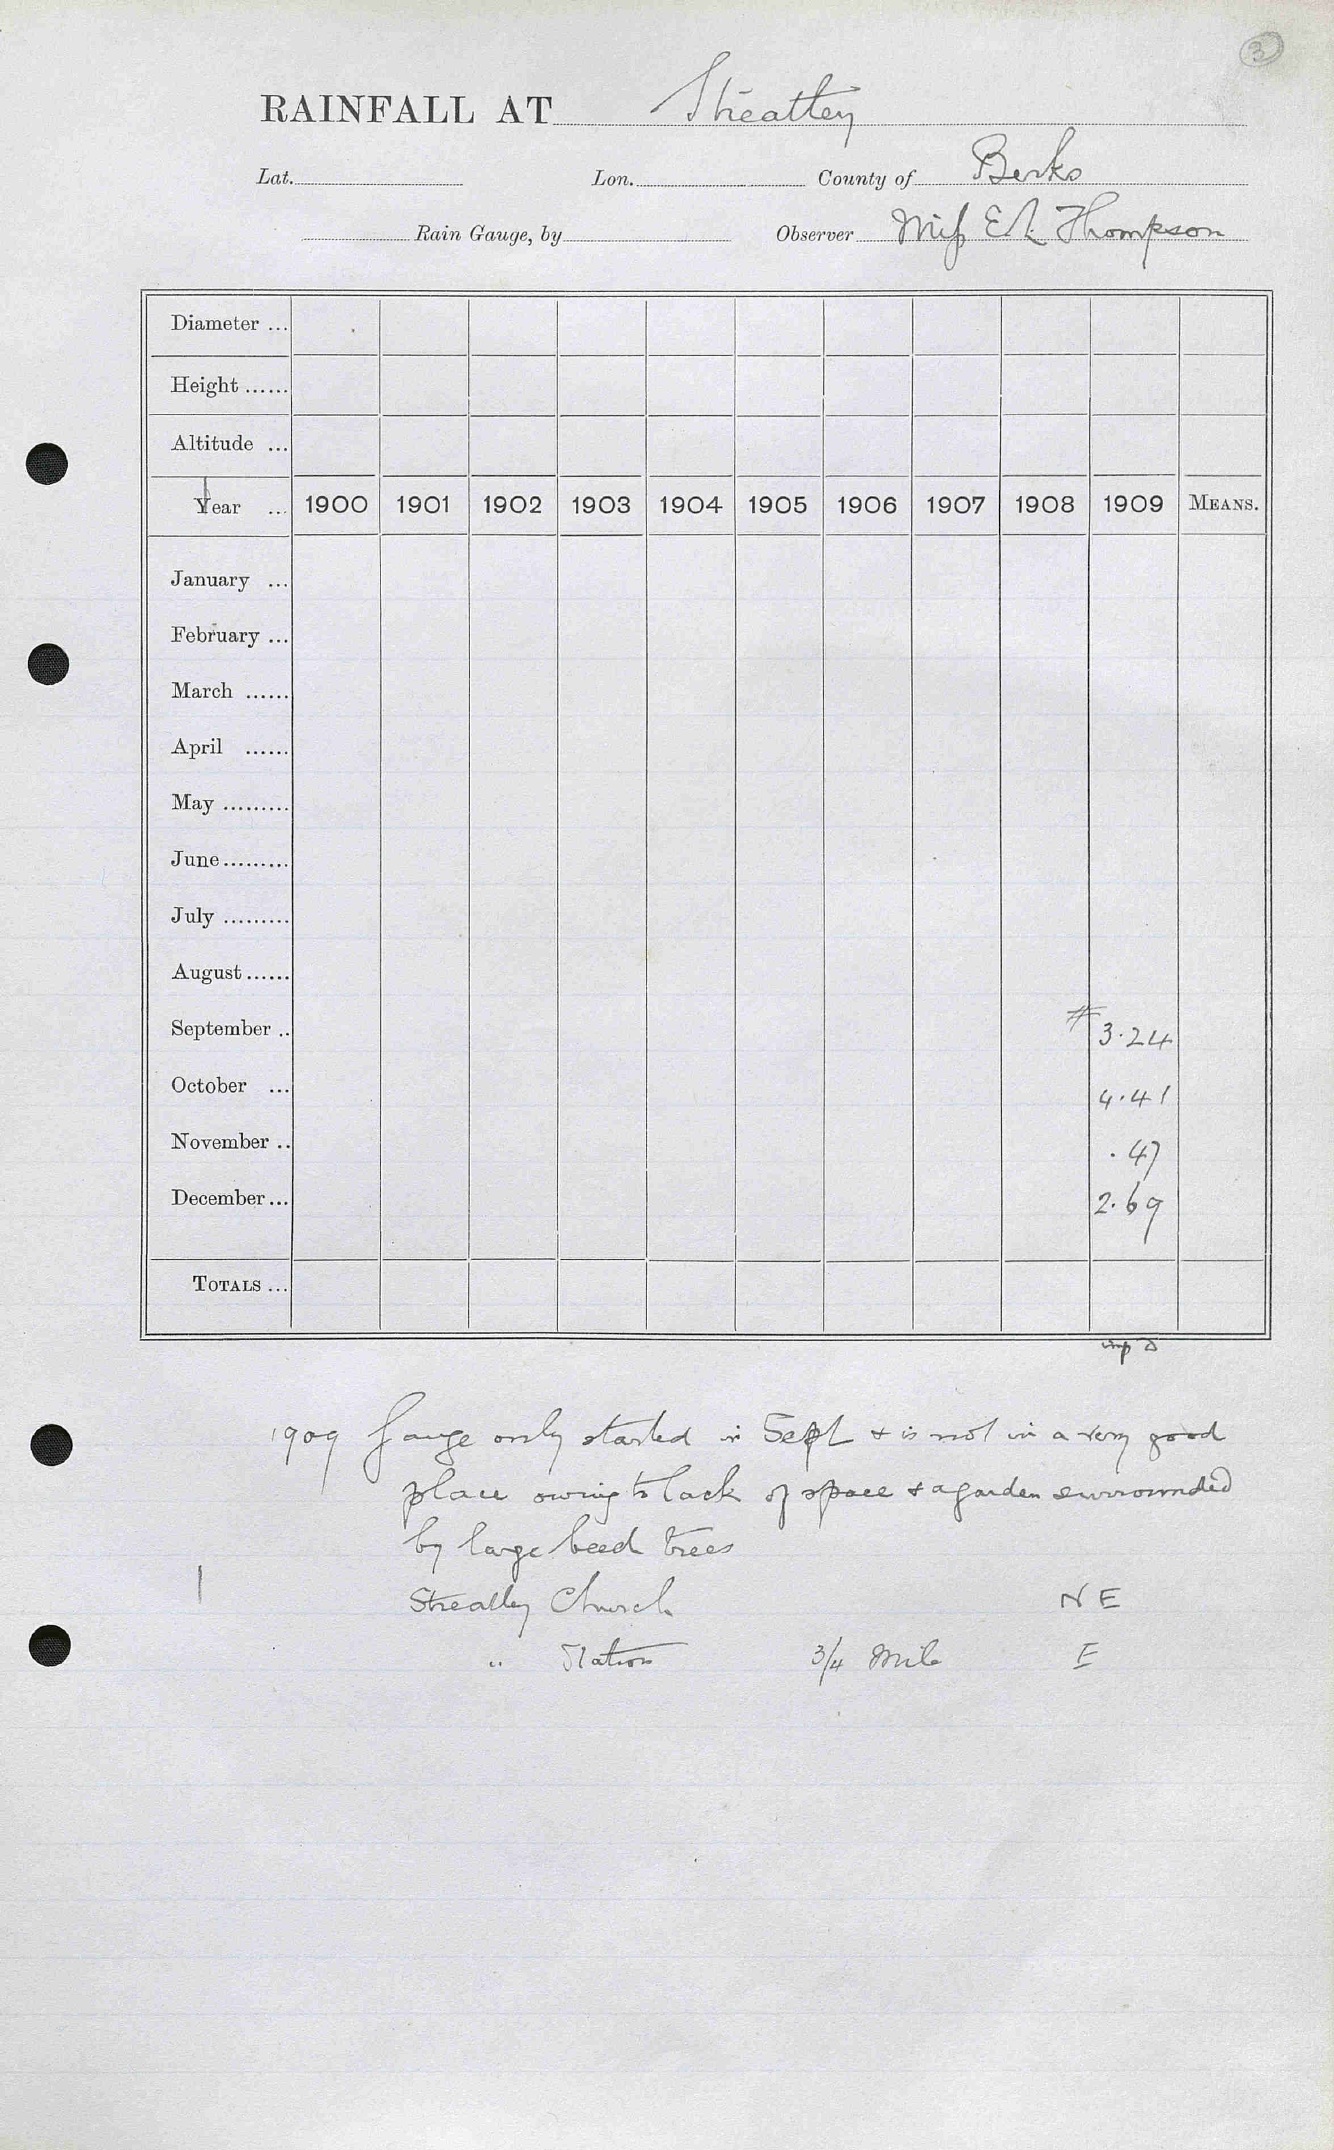 3
RAINFALL AT Streatley
Lat. Lon. County of Berks
Rain Gauge, by Observer Miss E L Thompson
Diameter ...
Height ......
Altitude ...
Year ... 1900 1901 1902 1903 1904 1905 1906 1907 1908 1909 MEANS.
January ...
February ...
March ......
April ......
May .........
June .........
July .........
August ......
September .. # 3.24
October ... 4.41
November .. .47
December ... 2.69
TOTALS ...
1909 Gauge only started in Sept & is not in a very good
place owing to lack of space & a garden surrounded
by large trees
Streatley Church NE
" Station 3/4 Mile E